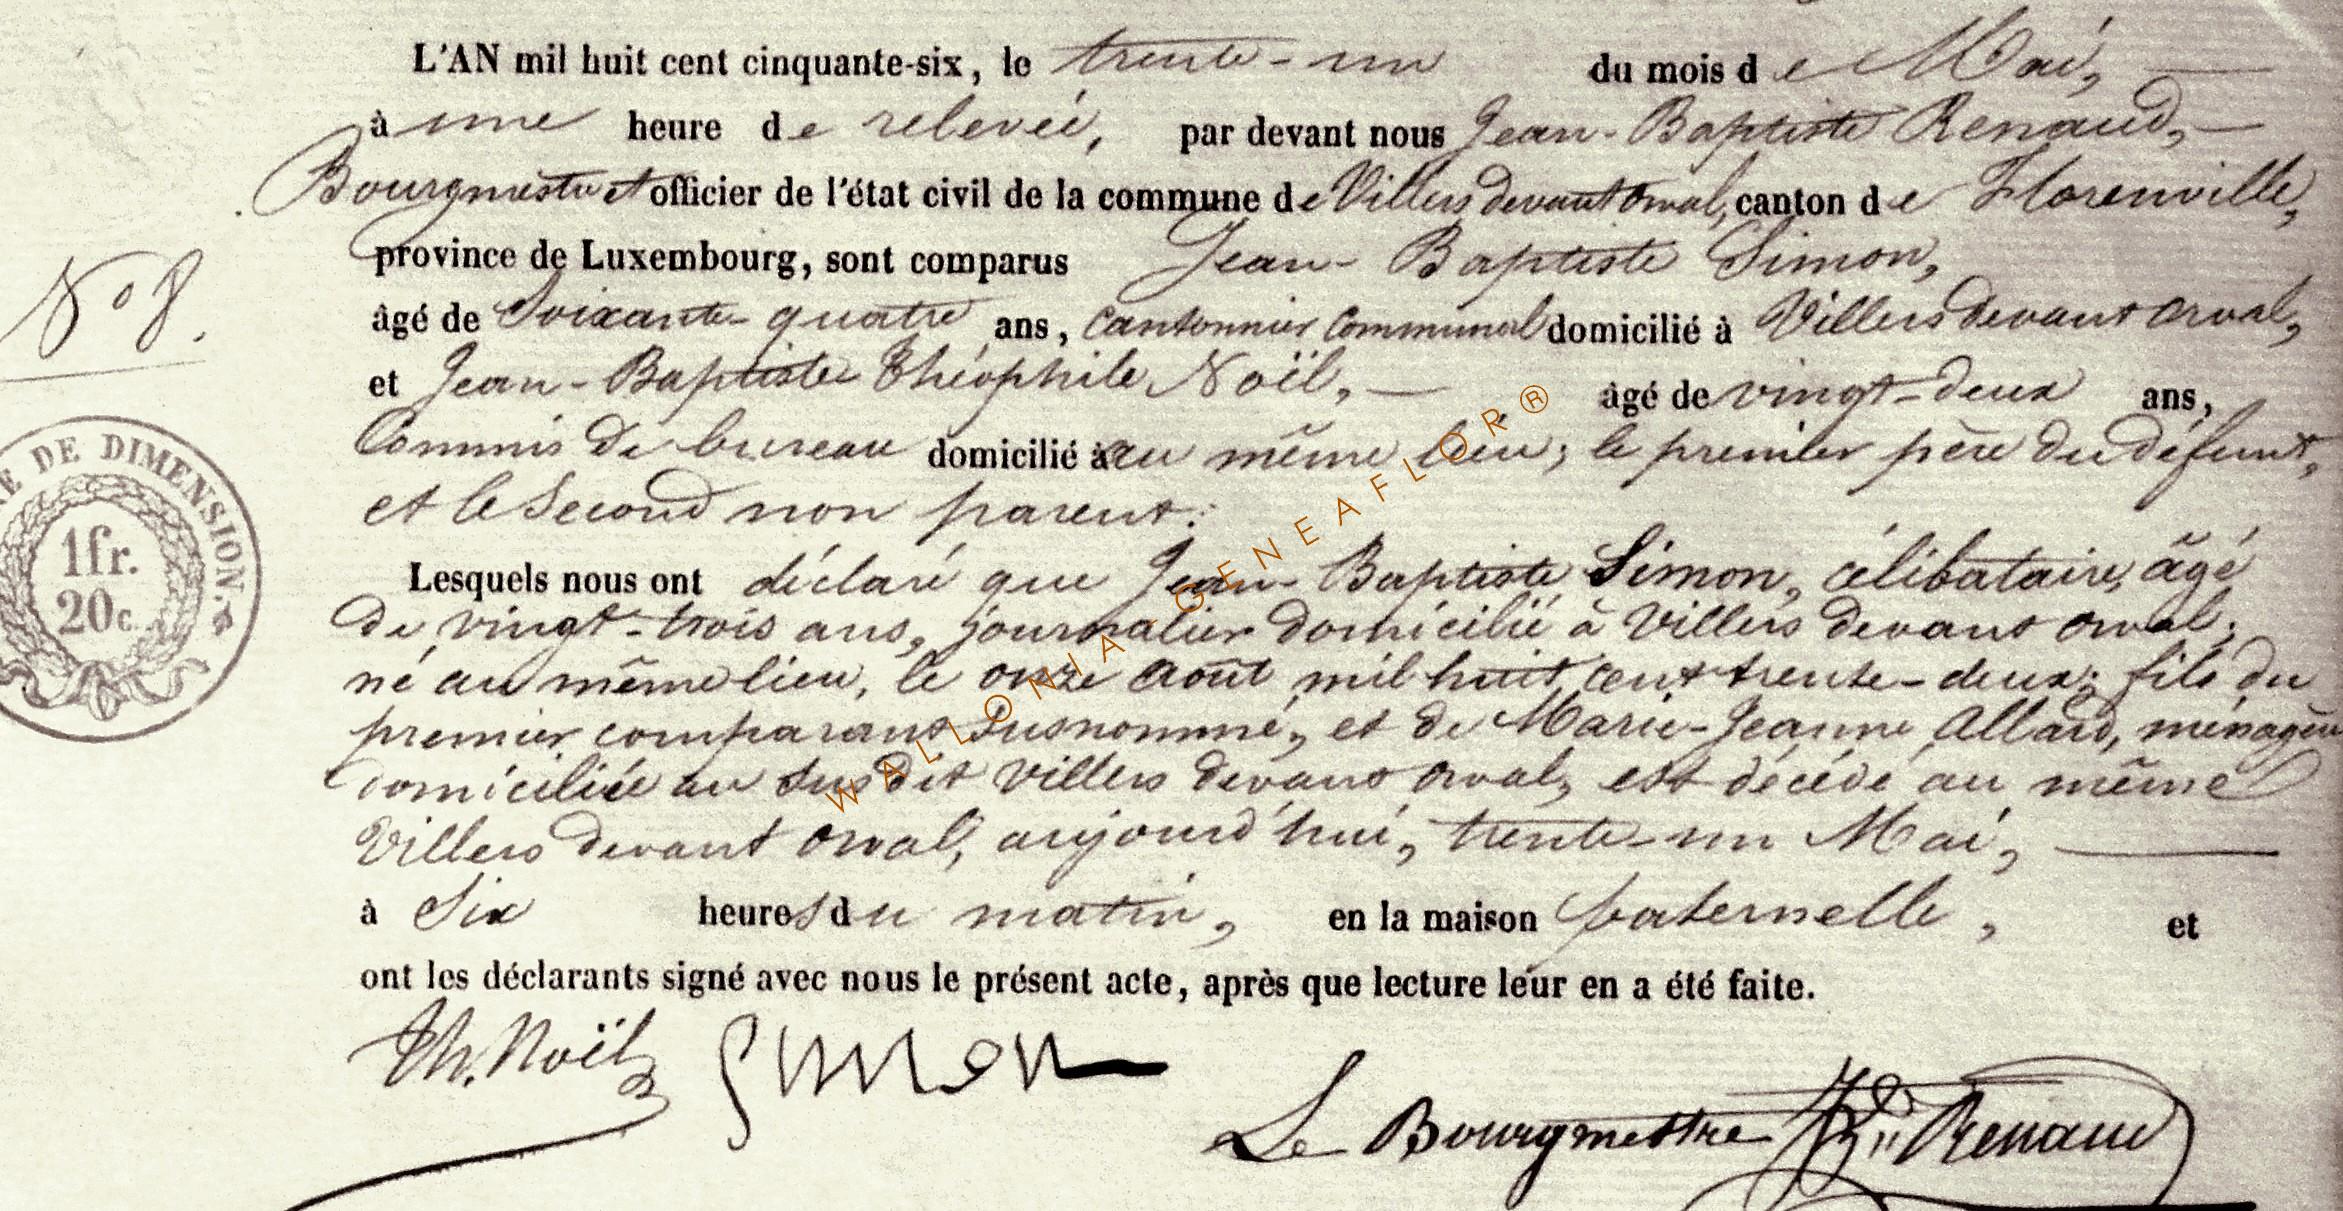 L'AN mil huit cent cinquante-six, le trente-un du mois de Mai,
à une heure de relevée, par devant nous Jean-Baptiste Renaud,
Bourgmestre et officier de l'état civil de la commune de Villers devant Orval, canton de Florenville,
province de Luxembourg, sont comparus Jean-Baptiste Simon,
âgé de Soixante-quatre ans, Cantonnier Communal domicilié à Villers devant Orval,
N° 8.
et Jean-Baptiste Théophile Noël, âgé de vingt-deux ans,
Commis de bureau domicilié à au même lieu; le premier père du défunt,
et le Second non parent.
DE DIMENSION.
1fr.
20c.
Lesquels nous ont déclaré que Jean-Baptiste Simon, célibataire, âgé
de vingt-trois ans, journalier domicilié à Villers devant Orval,
né au même lieu, le onze Août mil huit cent trente-deux; fils du
premier comparant susnommé, et de Marie-Jeanne Allard, ménagère
domiciliée au susdit Villers devant Orval, est décédé au même
Villers devant Orval, aujourd'hui, trente-un Mai,
à Six heures du matin, en la maison paternelle, et
ont les déclarants signé avec nous le présent acte, après que lecture leur en a été faite.
Th. Noël Simon
Le Bourgmestre Renaud
WALLONIA-GENEAFLOR®